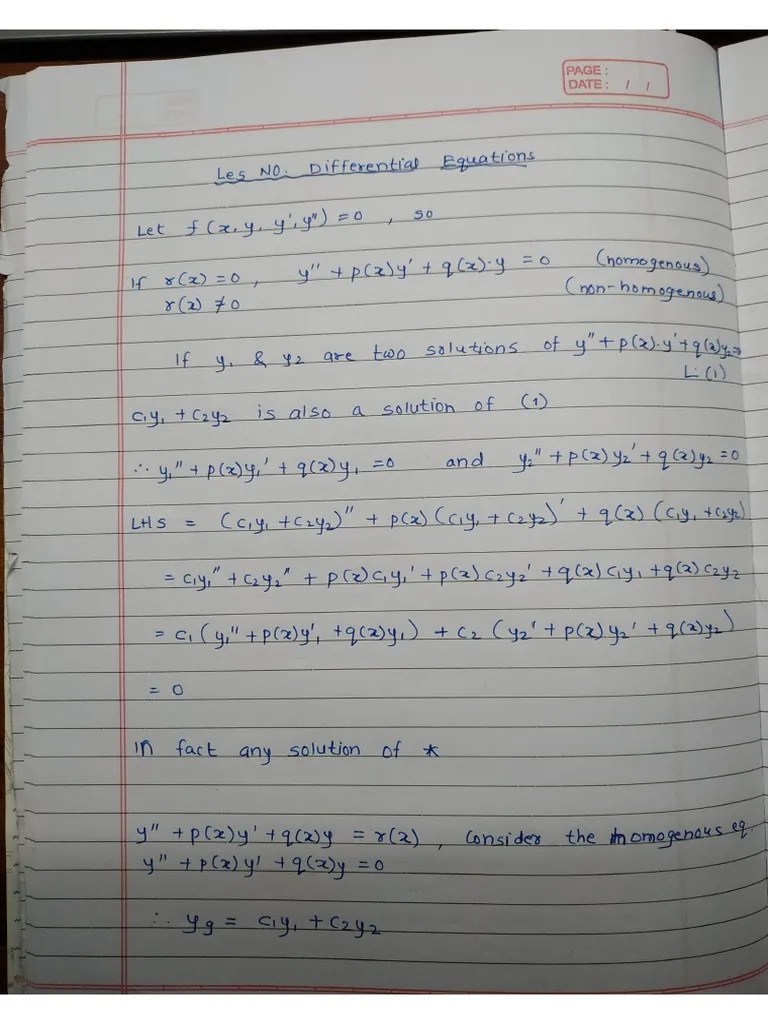 PAGE :
DATE : / /
Les NO. Differential Equations
Let f(x, y, y', y'') = 0 , so
If r(x) = 0 , y'' + p(x)y' + q(x)·y = 0 (homogenous)
r(x) ≠ 0 (non-homogenous)
If y₁ & y₂ are two solutions of y'' + p(x)·y' + q(x)y₂=
L: (1)
c₁y₁ + c₂y₂ is also a solution of (1)
∴ y₁'' + p(x)y₁' + q(x)y₁ = 0 and y₂'' + p(x)y₂' + q(x)y₂ = 0
LHS = (c₁y₁ + c₂y₂)'' + p(x) (c₁y₁ + c₂y₂)' + q(x) (c₁y₁ + c₂y₂)
= c₁y₁'' + c₂y₂'' + p(x)c₁y₁' + p(x)c₂y₂' + q(x)c₁y₁ + q(x)c₂y₂
= c₁(y₁'' + p(x)y'₁ + q(x)y₁) + c₂ (y₂' + p(x)y₂' + q(x)y₂)
= 0
In fact any solution of *
y'' + p(x)y' + q(x)y = r(x) , Consider the homogenous eq.
y'' + p(x)y' + q(x)y = 0
∴ yg = c₁y₁ + c₂y₂